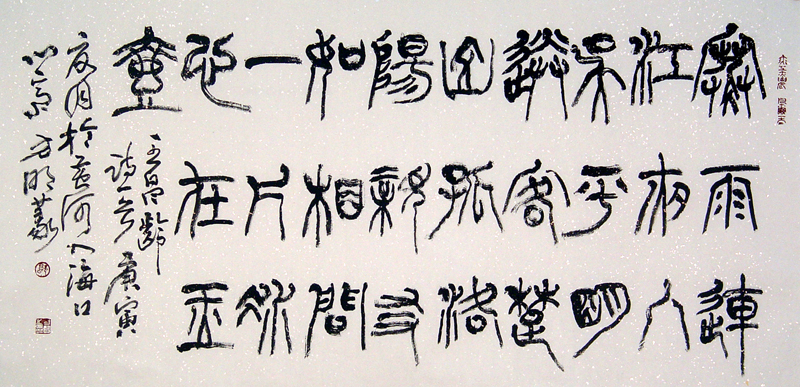 寒雨連
江夜入
吳平明
送客楚
山孤洛
陽親友
如相問
一片冰
心在玉
壺
王昌齡
詩一首 庚寅
夏月於黃河入海口